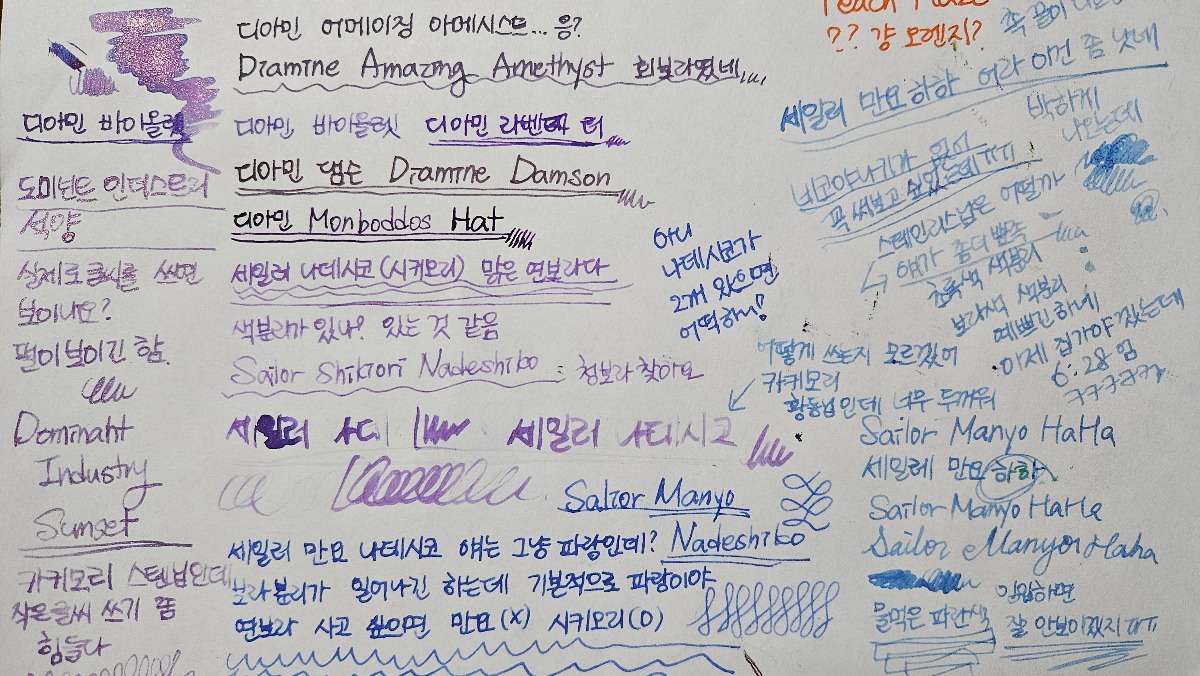 디아민 어메이징 아메시스트... 응?
Diamine Amazing Amethyst 회보라떴네
디아민 바이올렛
디아민 바이올렛 디아민 라벤더 터
도미넌트 인더스트리
석양
디아민 댐슨 Diamine Damson
디아민 Monboddos Hat
실제로 글씨를 쓰면
보이나요?
펄이 보이긴 함.
세일러 나데시코(시키모리) 맑은 연보라다
색분리가 있나? 있는 것 같음
Sailor Shikiori Nadeshiko : 청보라 찾아요
세일러 나데
세일러 나데시코
Dominant
Industry
Sunset
카키모리 스텐닙인데
작은글씨 쓰기 좀
힘들다
Sailor Manyo
Nadeshiko
세일러 만요 나데시코 얘는 그냥 파랑인데?
보라분리가 일어나긴 하는데 기본적으로 파랑이야
연보라 사고 싶으면 만요(X) 시키오리(O)
아니
나데시코가
2개 있으면
어떡하니!
?? 걍 오렌지?
세일러 만요 하하 어라 이건 좀 낫네
박하게
나오는데
네코야나기가 있네
꼭 써보고 싶었는데 ㅠㅠ
스테인리스닙은 어떨까
↳ 얘가 좀 더 반죽
초록색 색분리
보라색 색분리
예쁘긴 하네
이제 집가야 겠는데
6:28 임
ㅋㅋㅋㅋㅋ
어떻게 쓰는지 모르겠어
카키모리
황동닙인데 너무 두꺼워
Sailor Manyo HaHa
세일레 만요 하하
Sailor Manyo HaHa
Sailor Manyo Haha
물먹은 파란색
잘 안보이겠지 ㅠㅠ